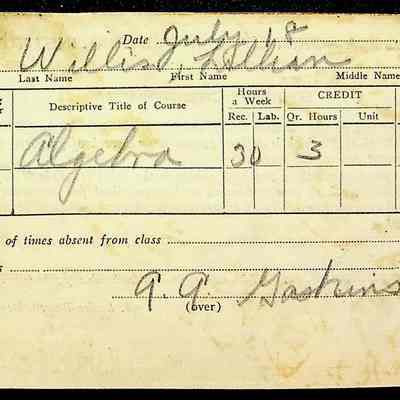 Date July 18
Willis, Lillian
Last Name First Name Middle Name
Descriptive Title of Course Hours a Week CREDIT
Rec. Lab. Qr. Hours Unit
Algebra 30 3
of times absent from class
A. A. Gaskins
(over)